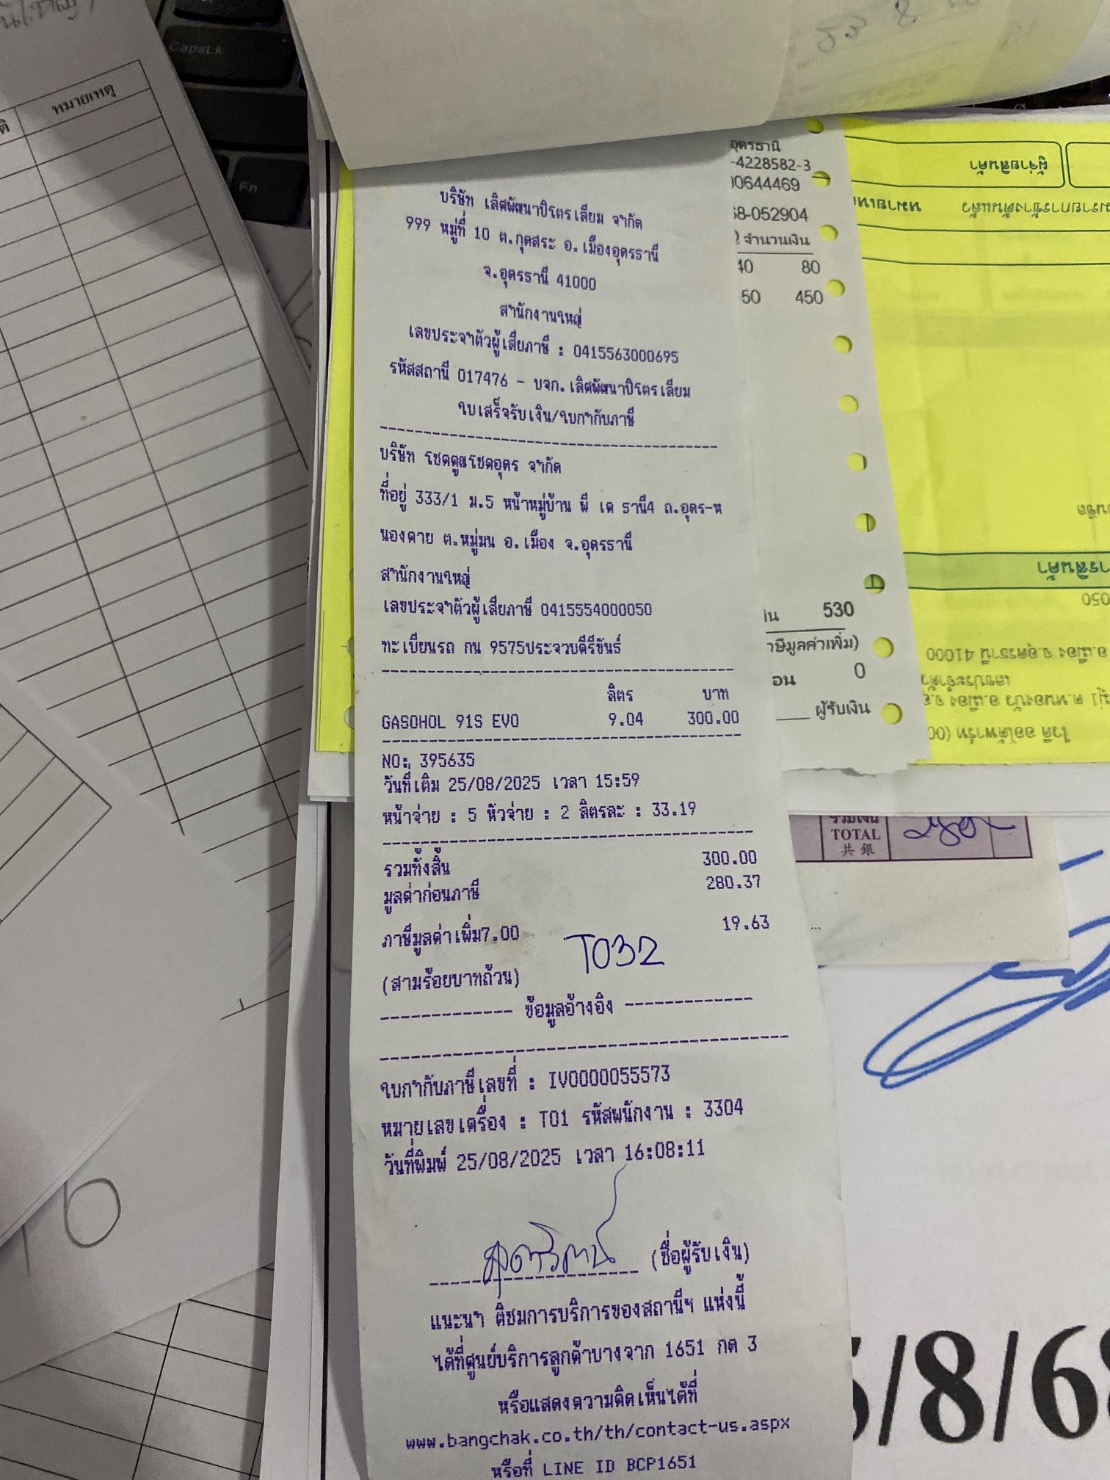 หมายเหตุ
CapsLk
Fn
บริษัท เลิศพัฒนาปิโตรเลียม จำกัด
999 หมู่ที่ 10 ต.กุดสระ อ.เมืองอุดรธานี
จ.อุดรธานี 41000
สำนักงานใหญ่
เลขประจำตัวผู้เสียภาษี : 0415563000695
รหัสสถานี 017476 - บจก.เลิศพัฒนาปิโตรเลียม
ใบเสร็จรับเงิน/ใบกำกับภาษี
บริษัท โชคคูณโชคอุดร จำกัด
ที่อยู่ 333/1 ม.5 หน้าหมู่บ้าน พี เค ธานี4 ถ.อุดร-ห
นองคาย ต.หมูม่น อ.เมือง จ.อุดรธานี
สำนักงานใหญ่
เลขประจำตัวผู้เสียภาษี 0415554000050
ทะเบียนรถ กน 9575ประจวบคีรีขันธ์
ลิตร บาท
GASOHOL 91S EVO 9.04 300.00
NO: 395635
วันที่เติม 25/08/2025 เวลา 15:59
หน้าจ่าย : 5 หัวจ่าย : 2 ลิตรละ : 33.19
รวมทั้งสิ้น 300.00
มูลค่าก่อนภาษี 280.37
ภาษีมูลค่าเพิ่ม7.00 19.63
T032
(สามร้อยบาทถ้วน)
ข้อมูลอ้างอิง
ใบกำกับภาษีเลขที่ : IV0000055573
หมายเลขเครื่อง : T01 รหัสพนักงาน : 3304
วันที่พิมพ์ 25/08/2025 เวลา 16:08:11
(ชื่อผู้รับเงิน)
แนะนำ ติชมการบริการของสถานีฯ แห่งนี้
ได้ที่ศูนย์บริการลูกค้าบางจาก 1651 กด 3
หรือแสดงความคิดเห็นได้ที่
www.bangchak.co.th/th/contact-us.aspx
หรือที่ LINE ID BCP1651
อุดรธานี
-4228582-3
00644469
68-052904
จำนวนเงิน
40 80
50 450
530
าษีมูลค่าเพิ่ม)
อน 0
ผู้รับเงิน
ผู้จ่ายสินค้า
หมายเหตุ
รวมเงิน
TOTAL
共銀
5/8/68